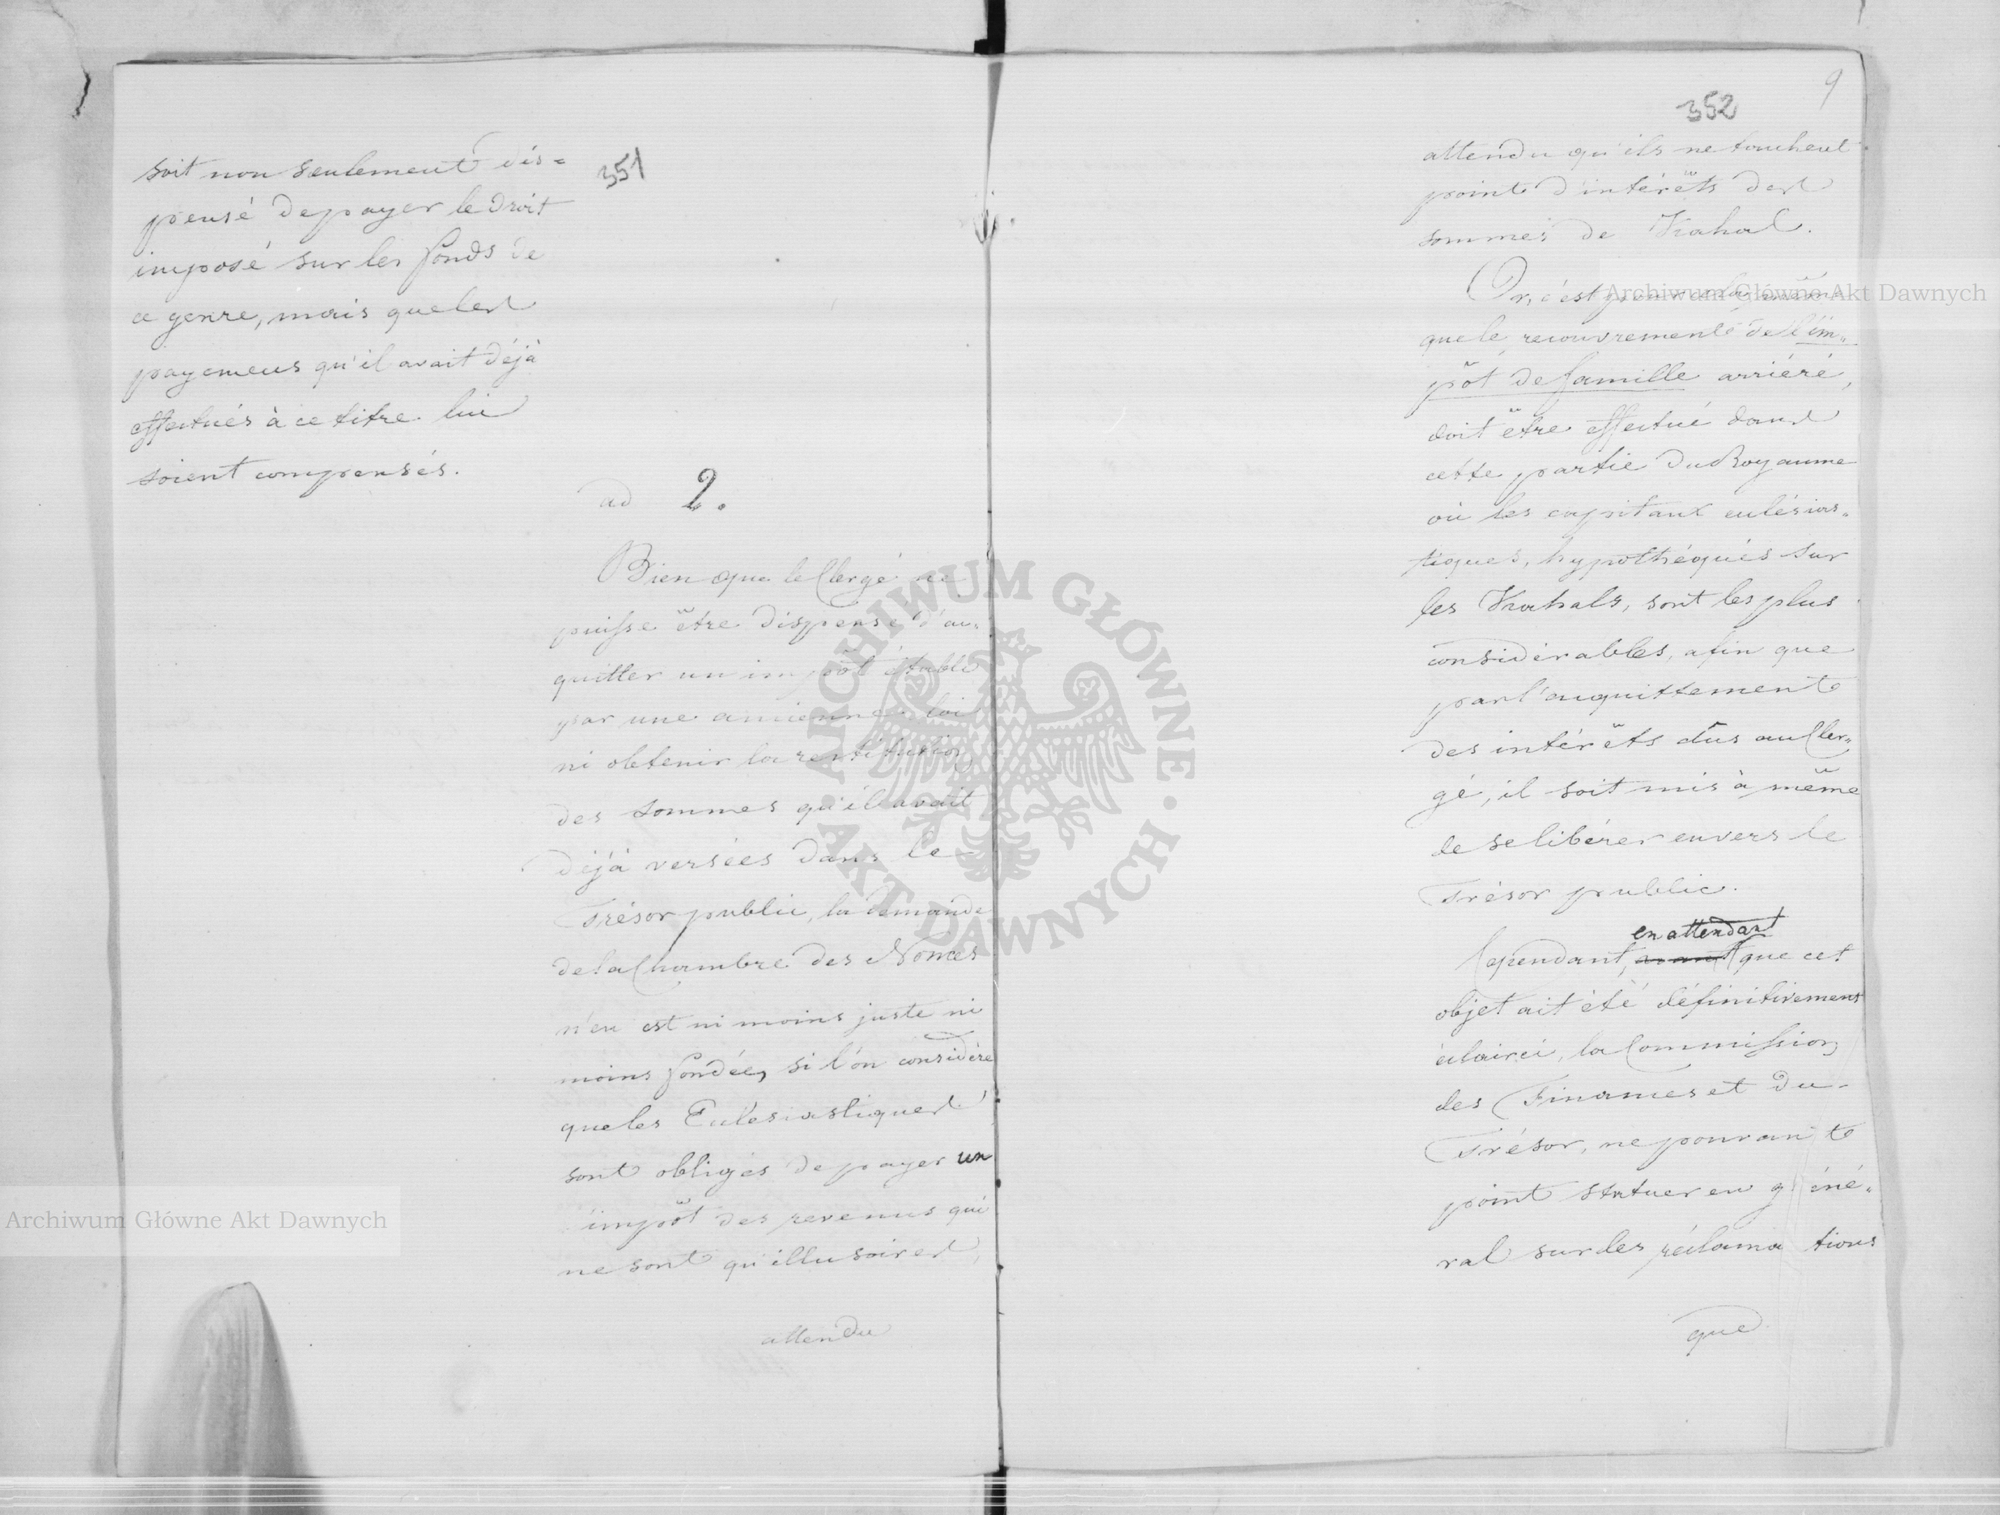 351
soit non seulement dis=
pensé de payer le droit
imposé sur les fonds de
ce genre, mais que les
payemens qu'il avait déjà
effectués à ce titre lui
soient compensés.
ad 2.
Bien que le Clergé ne
puisse être dispensé d'ac„
quitter un impôt établi
par une ancienne loi
ni obtenir la restitution
des sommes qu'il avait
déjà versées dans le
Trésor public, la demande
de la Chambre des Nonces
n'en est ni moins juste ni
moins fondée, si l'on considère
que les Ecclésiastiques
sont obligés de payer un
impôt des revenus qui
ne sont qu'illusoires,
attendu
9
352
attendu qu'ils ne touchent
point d'intérêts des
sommes de Kahal.
Or, c'est pour cela même
que le recouvrement de l'im„
pôt de famille arriéré,
doit être effectué dans
cette partie du Royaume
où les capitaux eclésias„
tiques, hypothéqués sur
les Kahals, sont les plus
considérables, afin que
par l'acquittement
des intérêts dûs au Cler„
gé, il soit mis à même
de se libérer envers le
Trésor public.
en attendant
Cependant, avant que cet
objet ait été définitivement
éclairci, la Commission
des Finances et du
Trésor, ne pouvant
point statuer en géné„
ral sur les réclamations
que
Archiwum Główne Akt Dawnych
Archiwum Główne Akt Dawnych
ARCHIWUM GŁÓWNE • AKT DAWNYCH •